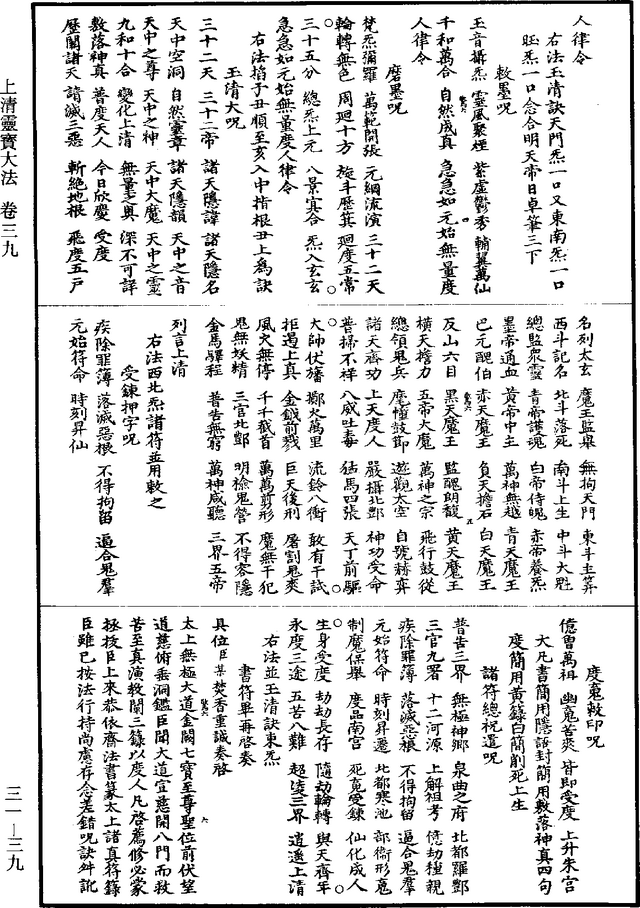 人律令
右法玉清訣天門炁一口又東南炁一口
旺炁一口念合明天帝日卓筆三下
敕墨呪
玉音攝炁 靈風聚煙 紫虛鬱秀 輔翼萬仙
千和萬合 自然成真 急急如元始無量度
人律令
磨墨呪
梵炁彌羅 萬範開張 元綱流演 三十二天
輪轉無色 周廻十方 旋斗歷箕 廻度五常
三十五分 總炁上元 八景冥合 炁入玄玄
急急如元始無量度人律令
右法掐子丑順至亥入中指根丑上為訣
玉清大呪
三十二天 三十二帝 諸天隱諱 諸天隱名
天中空洞 自然靈章 諸天隱韻 天中之音
天中之尊 天中之神 天中大魔 天中之靈
九和十合 變化上清 無量之奧 深不可詳
敷落神真 普度天人 今日欣慶 受度
歷關諸天 請滅三惡 斬絕地根 飛度五戶
名列太玄 魔王監舉 無拘天門 東斗主筭
西斗記名 北斗落死 南斗上生 中斗大魁
總監眾靈 青帝護魂 白帝侍魄 赤帝養炁
黑帝通血 黃帝中主 萬神無越 青天魔王
巴元醜伯 赤天魔王 負天擔石 白天魔王
反山六目 黑天魔王 監醜朗馥 黃天魔王
橫天擔力 五帝大魔 萬神之宗 飛行鼓從
總領鬼兵 麾幢鼓節 遊觀太空 自號赫奕
諸天齊功 上天度人 嚴攝北酆 神功受命
普掃不祥 八威吐毒 猛馬四張 天丁前驅
大帥仗旛 擲火萬里 流鈴八衝 敢有干試
拒遏上真 金鉞前戮 巨天後刑 屠割鬼爽
風火無停 千千截首 萬萬剪形 魔無干犯
鬼無妖精 三官北酆 明檢鬼營 不得容隱
金馬驛程 普告無窮 萬神咸聽 三界五帝
列言上清
右法西北炁諸符並用敕之
受鍊押字呪
疾除罪簿 落滅惡根 不得拘留 逼合鬼羣
元始符命 時刻昇仙
度魂敕印呪
億曾萬祖 幽魂苦爽 皆即受度 上升朱宮
大凡書簡用隱語封簡用敷落神真四句
度簡用黃籙白簡削死上生
諸符總祝遣呪
普告三界 無極神鄉 泉曲之府 北都羅酆
三官九署 十二河源 上解祖考 億劫種親
疾除罪簿 落滅惡根 不得拘留 逼合鬼羣
元始符命 時刻昇遷 北都寒池 部衛形魂
制魔保舉 度品南宮 死魂受鍊 仙化成人
生身受度 劫劫長存 隨劫輪轉 與天齊年
永度三途 五苦八難 超淩三界 逍遙上清
右法並玉清訣東炁
書符畢再啓奏
具位臣某焚香重誠奏啓
太上無極大道金闕七寶至尊聖位前伏望
道慈俯垂洞鑑臣聞大道宣慈開八門而救
苦至真演教開三籙以度人凡啓薦修必蒙
拯拔臣上來恭依齋法書篆太上諸真符籙
臣雖已按法行持尚慮存念差錯呪訣舛訛
上清靈寶大法 卷三九
三一—三九